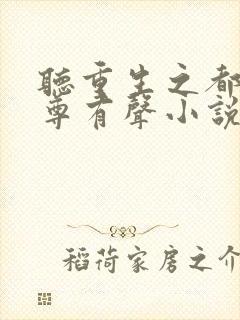 聽重生之都
尊有聲小說
稻荷家房之介